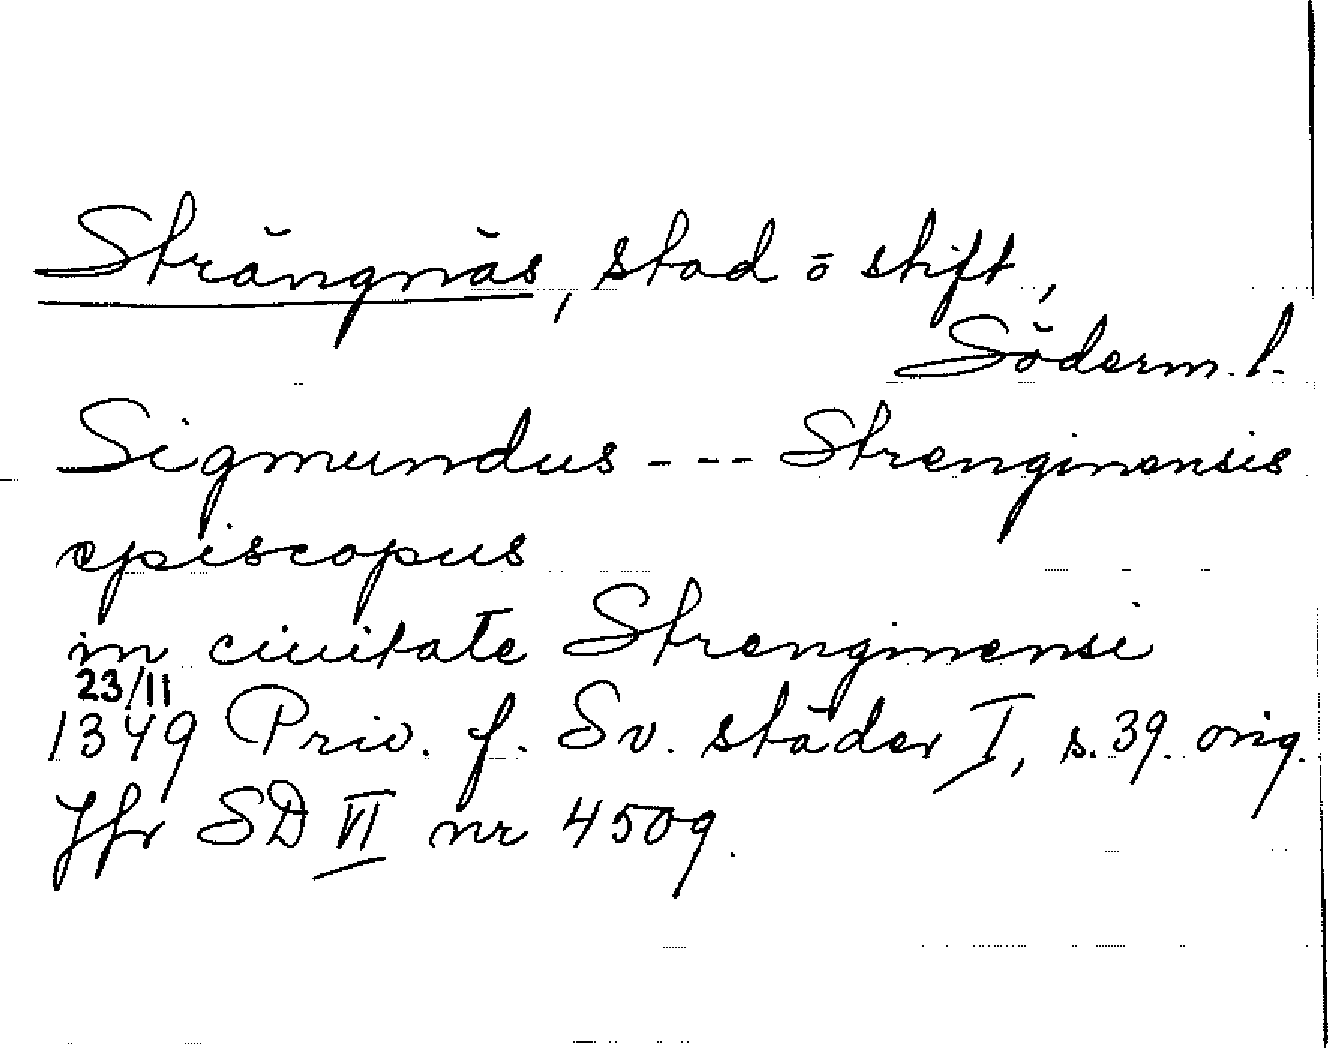 Strängnäs, stad o stift,
Söderm. l.
Sigmundus --- Strenginensis
episcopus
in ciuitate Strenginensi
23/11
1349 Priv. f. Sv. städer I, s. 39. orig.
Jfr SD VI nr 4509.